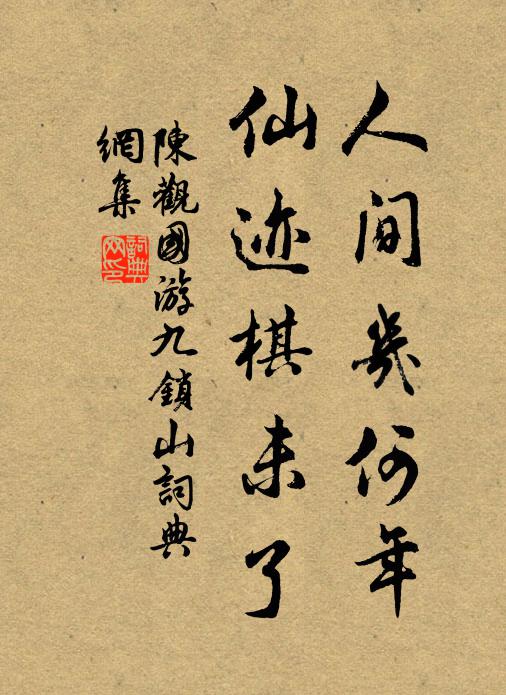 人間幾何年
仙迹棋未了
陳觀國游九鎖山詞典
網集
詞典
网印